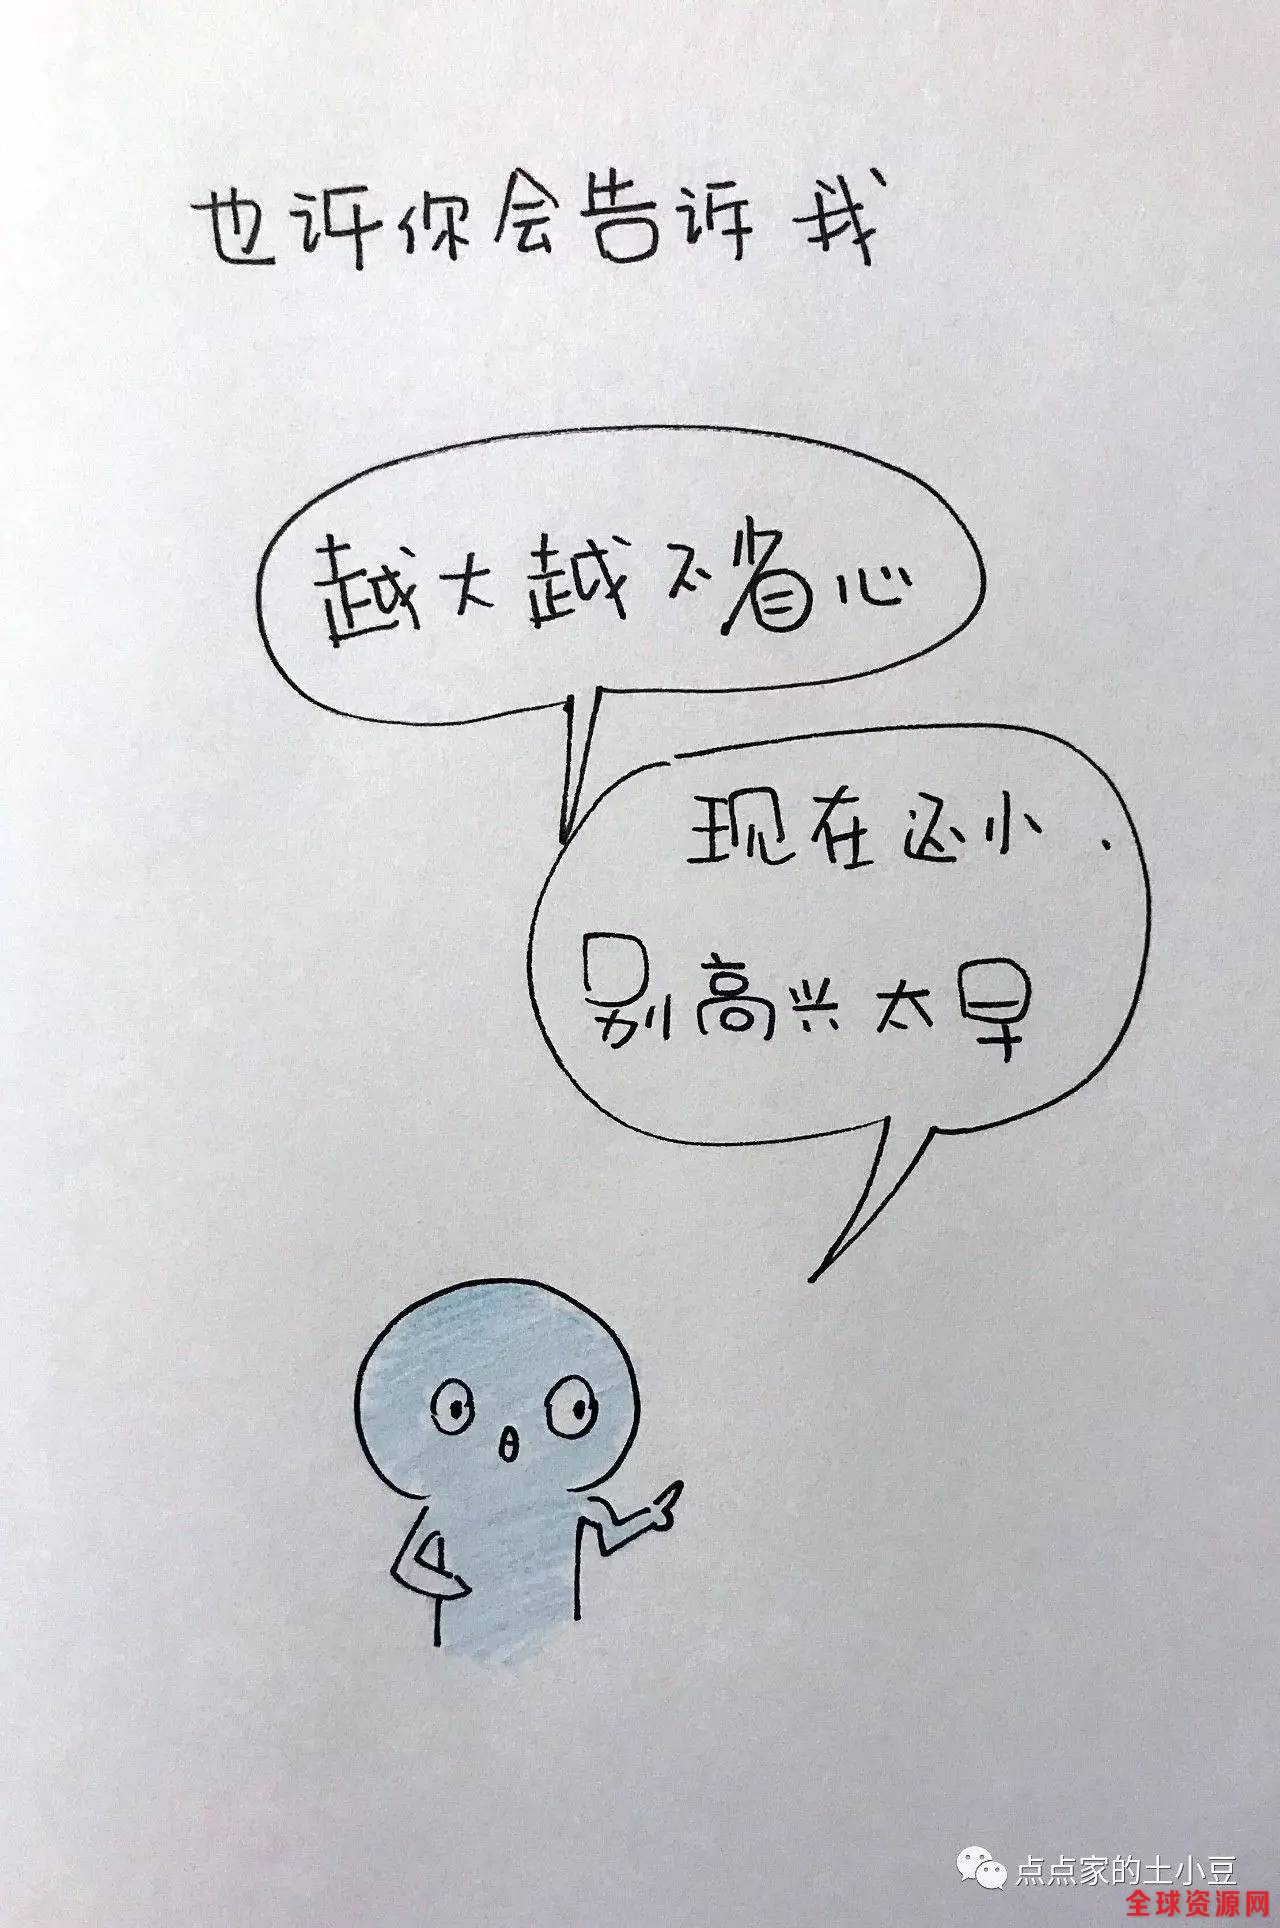 也许你会告诉我
越大越不省心
现在还小.
别高兴太早
点点家的土小豆
全球资源网